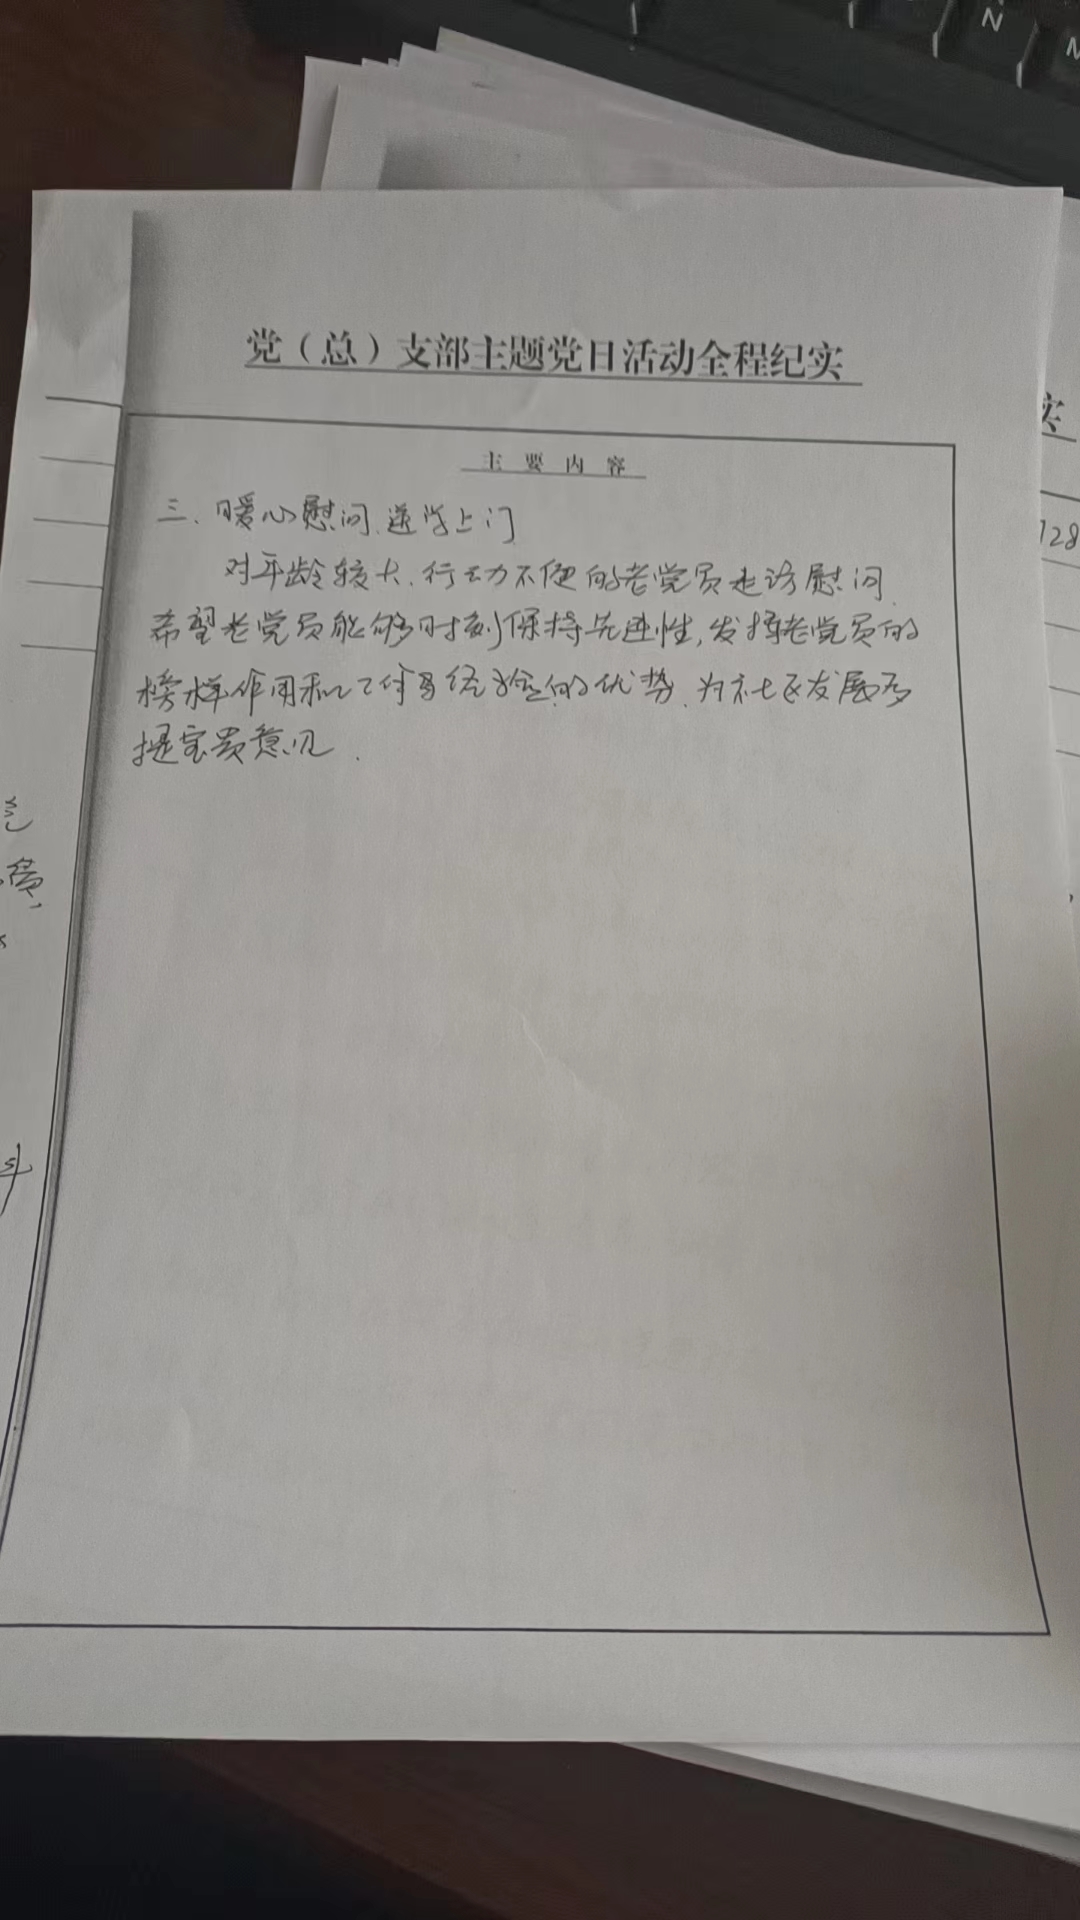 党（总）支部主题党日活动全程纪实
主要内容
三、暖心慰问、送学上门
对年龄较大、行动不便的老党员走访慰问
希望老党员能够时刻保持先进性,发挥老党员的
榜样作用和工作经验的优势、为社区发展多
提宝贵意见.
实
128
N